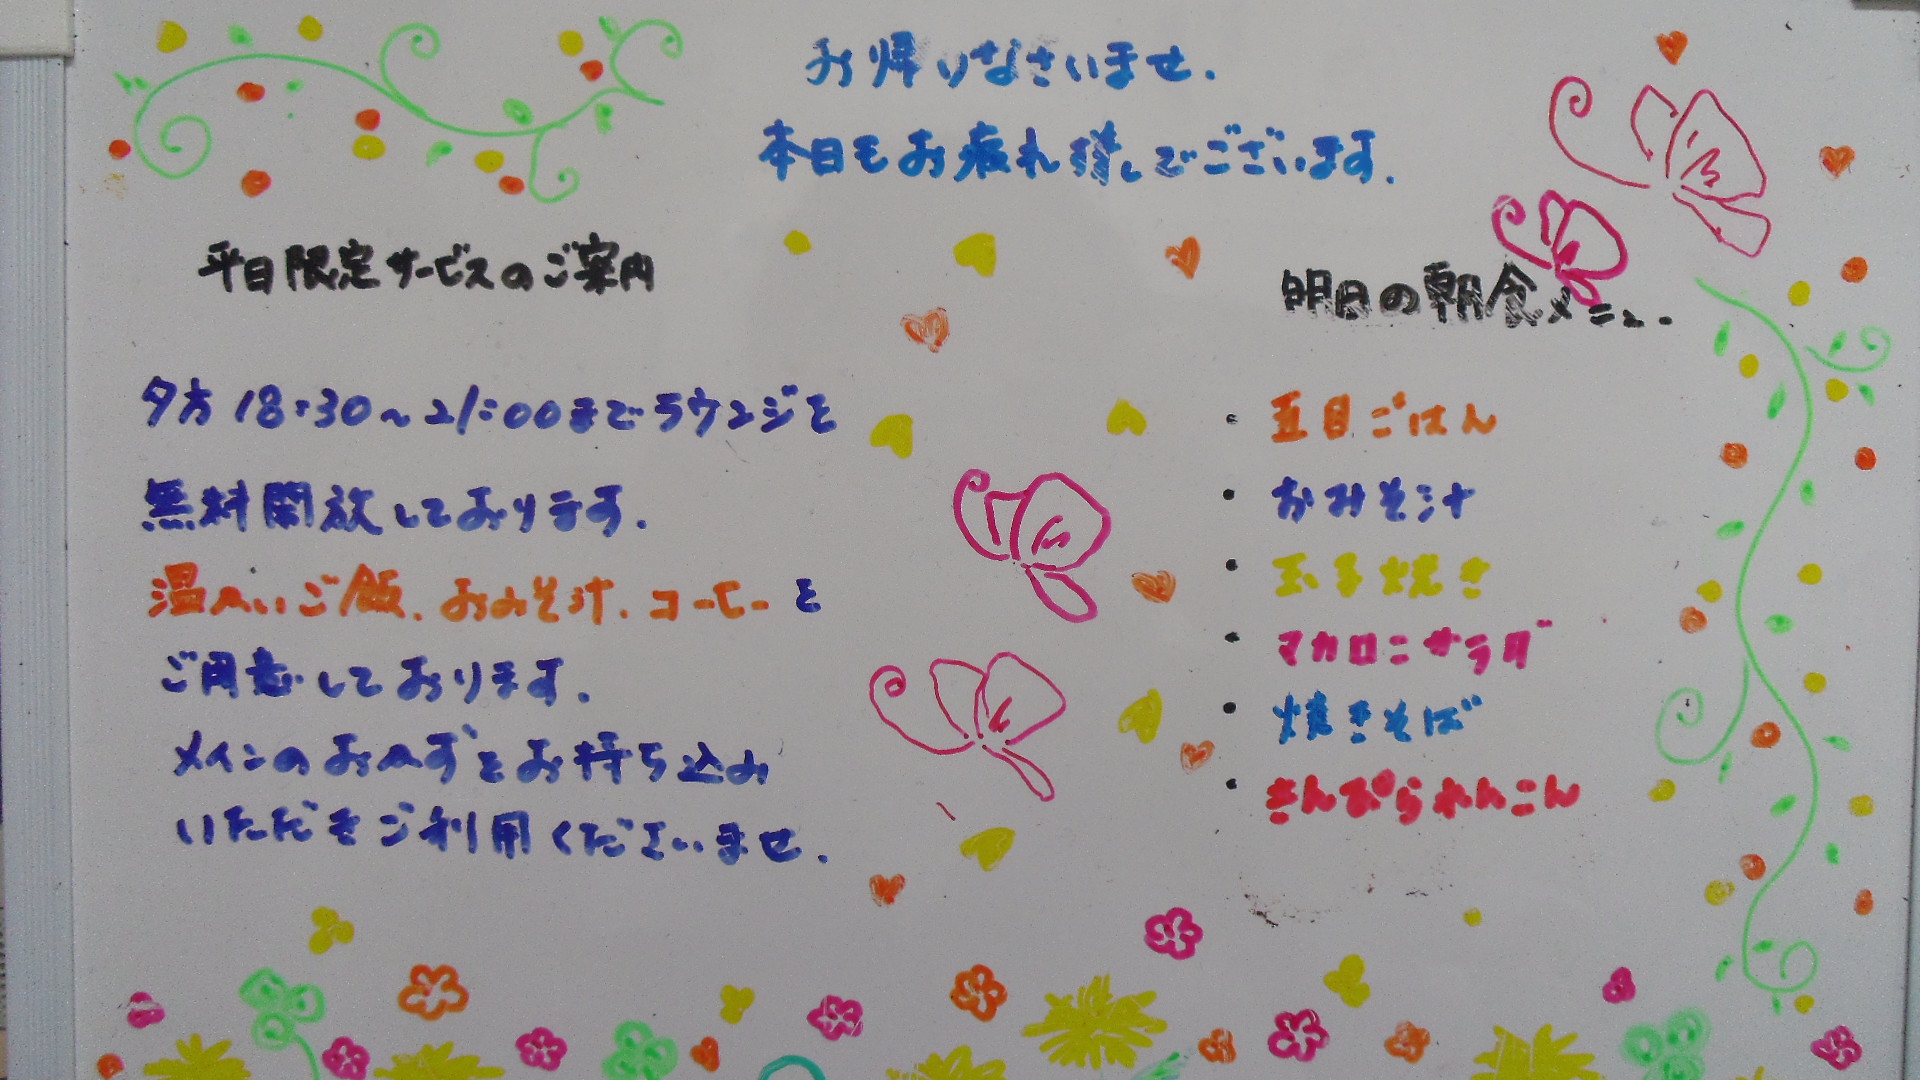 お帰りなさいませ.
本日もお疲れ様でございます.
平日限定サービスのご案内
夕方18:30~21:00までラウンジを
無料開放しております.
温かいご飯.おみそ汁.コーヒーを
ご用意しております.
メインのおかずをお持ち込み
いただきご利用くださいませ.
明日の朝食メニュー
・五目ごはん
・おみそ汁
・玉子焼き
・マカロニサラダ
・焼きそば
・きんぴられんこん